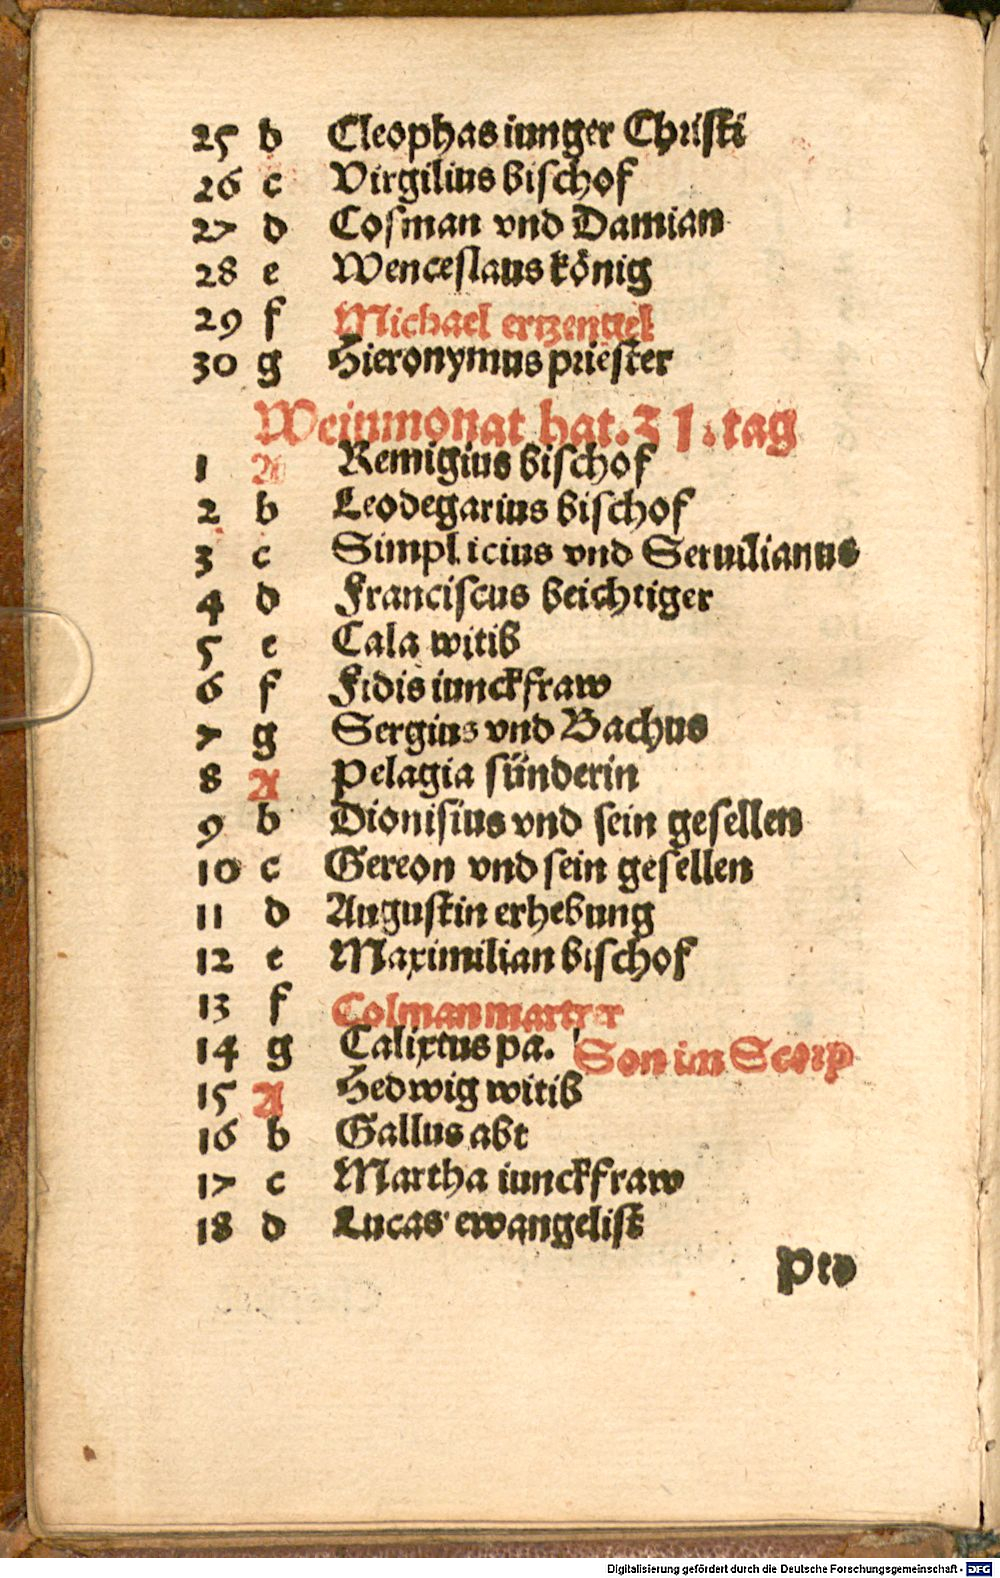 25 b Cleophas iunger Christi
26 c Virgilius bischof
27 d Cosman vnd Damian
28 e Wenceslaus könig
29 f Michael ertzengel
30 g Hieronymus priester
Weinmonat hat. 31. tag
1 A Remigius bischof
2 b Leodegarius bischof
3 c Simplicius vnd Seruilianus
4 d Franciscus beichtiger
5 e Cala witib
6 f Fidis iunckfraw
7 g Sergius vnd Bachus
8 A Pelagia sünderin
9 b Dionisius vnd sein gesellen
10 c Gereon vnd sein gesellen
11 d Augustin erhebung
12 e Maximilian bischof
13 f Colman martrer
14 g Calixtus pa. Son im Scorp
15 A Hedwig witib
16 b Gallus abt
17 c Martha iunckfraw
18 d Lucas ewangelist
Pto
Digitalisierung gefördert durch die Deutsche Forschungsgemeinschaft - DFG